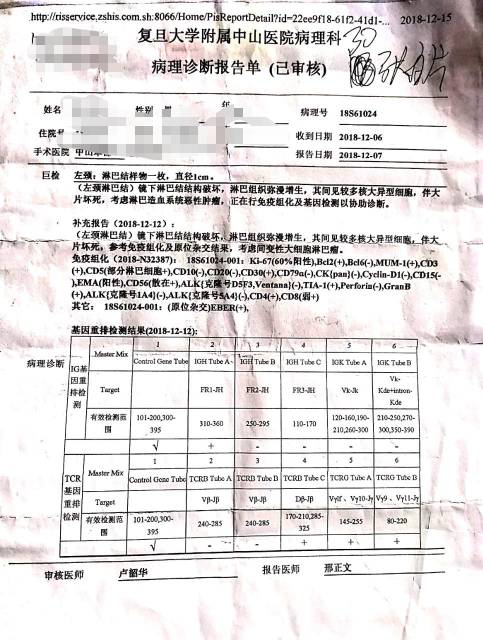 http://risservice.zshis.com.sh:8066/Home/PisReportDetail?id=22ee9f18-61f2-41d1-... 2018-12-15
复旦大学附属中山医院病理科
病理诊断报告单 (已审核)
姓名 性别 年
病理号 18S61024
住院号 收到日期 2018-12-06
手术医院 中山 报告日期 2018-12-07
巨检 左颈：淋巴结样物一枚，直径1cm。
（左颈淋巴结）镜下淋巴结结构破坏，淋巴组织弥漫增生，其间见较多核大异型细胞，伴大
片坏死，考虑淋巴造血系统恶性肿瘤，正在行免疫组化及基因检测以协助诊断。
补充报告（2018-12-12）：
（左颈淋巴结）镜下淋巴结结构破坏，淋巴组织弥漫增生，其间见较多核大异型细胞，伴大
片坏死，参考免疫组化及原位杂交结果，考虑间变性大细胞淋巴瘤。
免疫组化（2018-N32387）：18S61024-001: Ki-67(60%阳性),Bcl2(+),Bcl6(-),MUM-1(+),CD3
(+),CD5(部分淋巴细胞+),CD10(-),CD20(-),CD30(+),CD79α(-),CK{pan}(-),Cyclin-D1(-),CD15(-
),EMA(阳性),CD56(散在+),ALK{克隆号D5F3,Ventana}(-),TIA-1(+),Perforin(-),GranB
(+),ALK{克隆号1A4}(-),ALK{克隆号5A4}(-),CD4(+),CD8(弱+)
其它：18S61024-001: (原位杂交)EBER(+),
基因重排检测结果(2018-12-12):
病理诊断
IG基因重排检测
1 2 3 4 5 6
Master Mix Control Gene Tube IGH Tube A IGH Tube B IGH Tube C IGK Tube A IGK Tube B
Target FR1-JH FR2-JH FR3-JH Vk-Jk Vk-Kde+intron-Kde
有效检测范围 101-200,300-395 310-360 250-295 110-170 120-160,190-210,260-300 210-250,270-300,350-390
√ + - - - -
TCR基因重排检测
1 2 3 4 5 6
Master Mix Control Gene Tube TCRB Tube A TCRB Tube B TCRB Tube C TCRG Tube A TCRG Tube B
Target Vβ-Jβ Vβ-Jβ Dβ-Jβ Vγlf、Vγ10-Jγ Vγ9、Vγ11-Jγ
有效检测范围 101-200,300-395 240-285 240-285 170-210,285-325 145-255 80-220
√ - - + + +
审核医师 卢韶华 报告医师 邢正文